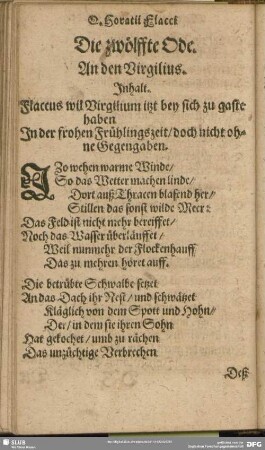 Q. Horatii Flacci
Die zwölffte Ode.
An den Virgilius.
Inhalt.
Flaccus wil Virgilium itzt bey sich zu gaste
haben
In der frohen Frühlingszeit/ doch nicht oh-
ne Gegengaben.
IZo wehen warme Winde/
So das Wetter machen linde/
Dort auß Thracen blasend her/
Stillen das sonst wilde Meer:
Das Feld ist nicht mehr bereiffet/
Noch das Wasser überläuffet/
Weil nunmehr der Flockenhauff
Das zu mehren höret auff.
Die betrübte Schwalbe setzet
An das Dach ihr Nest/ und schwätzet
Kläglich von dem Spott und Hohn/
Der/ in dem sie ihren Sohn
Hat gekochet/ umb zu rächen
Das unzüchtige Verbrechen
Deß
SLUB